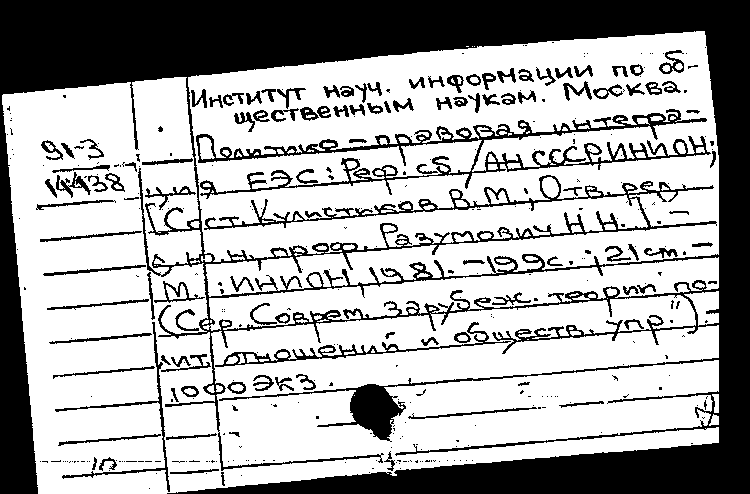 Институт науч. информации по об-
щественным наукам. Москва.
91-3
14438
Политико-правовая интегра-
ция ЕЭС: Реф. сб. / АН СССР, ИНИОН;
[Сост. Кулистиков В.М.; Отв. ред.
д.ю.н., проф. Разумович Н.Н.]. -
М.: ИНИОН, 1981. - 199с.; 21 см. -
(Сер. „Соврем. зарубеж. теории по-
лит. отношений и обществ. упр.") -
1000 экз.
10